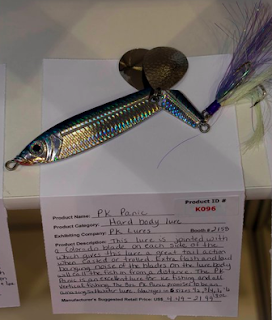 Product ID #
K096
Product Name: PK Panic
Product Category: Hard body lure
Exhibiting Company: PK Lures Booth #2198
Product Description: This lure is jointed with
a Colorado blade on each side of the
which gives this lure a great tail action
when casted or trolled. Extra flash and
banging noise of the blades on the hard body
will call the fish in from a distance. The PK
Panic is excellent for ice fishing and all
vertical fishing.
Manufacturer's Suggested Retail Price: US$